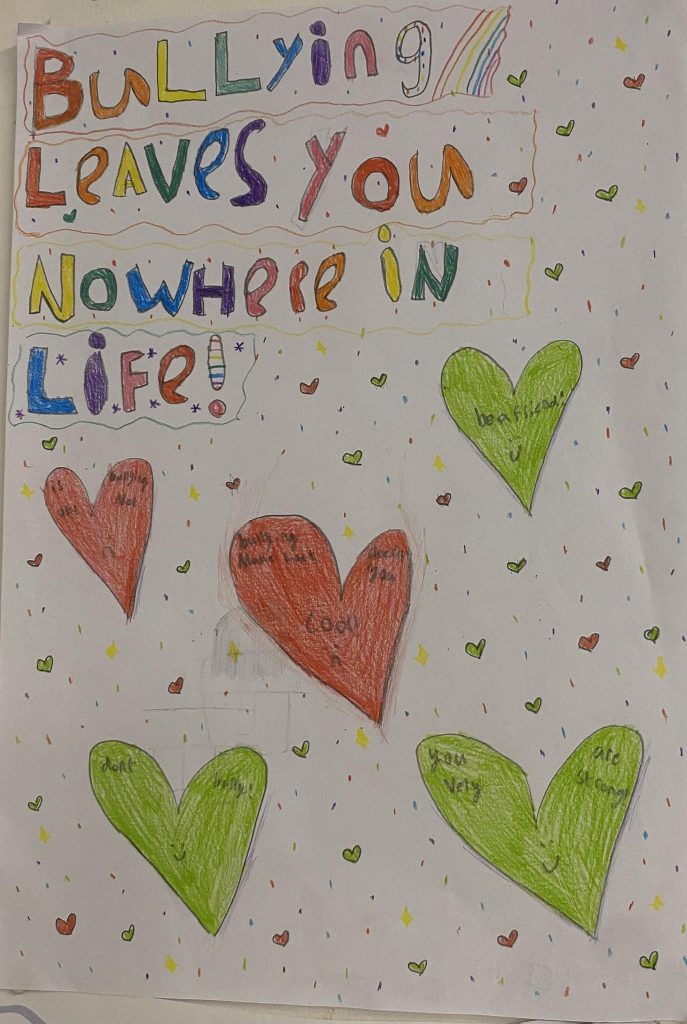 BuLLying
LeAVeS you
NoWHere iN
LiFe!
be a friend!
is bullying
ok! Not
bullying doesn't
Make you
cool
dont bully!
you are
very strong!